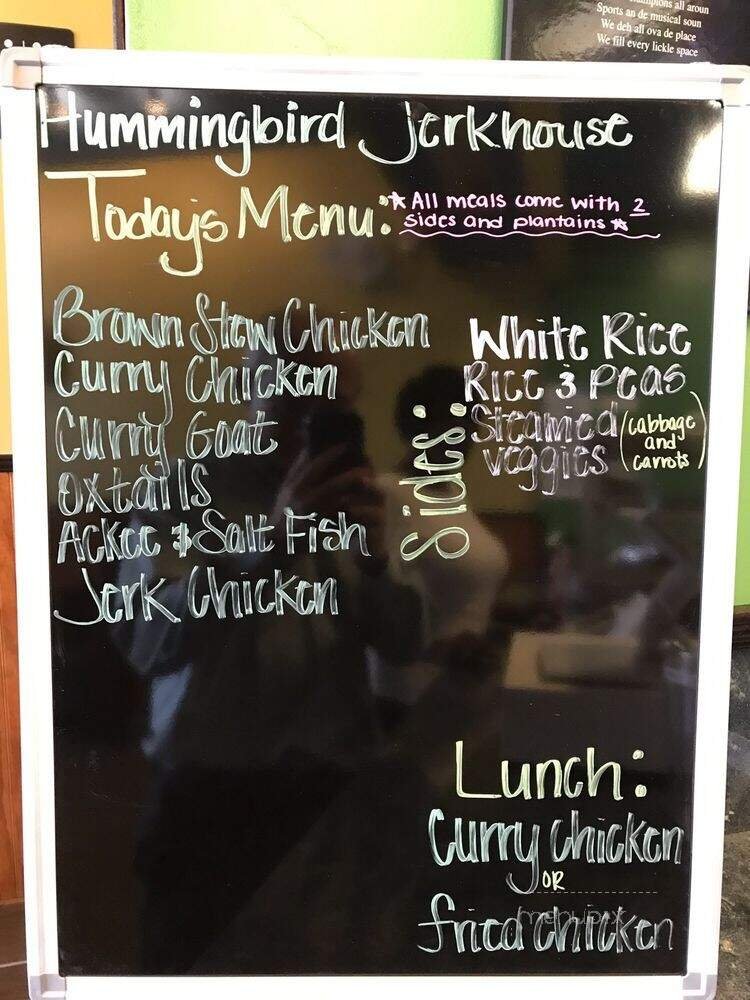 mpions all aroun
Sports an de musical soun
We deh all ova de place
We fill every lickle space
Hummingbird Jerkhouse
Today's Menu:
*All meals come with 2
sides and plantains*
Brown Stew Chicken
Curry Chicken
Curry Goat
Oxtails
Ackee & Salt Fish
Jerk Chicken
Sides:
White Rice
Rice & Peas
Steamed veggies (cabbage and carrots)
Lunch:
Curry chicken
OR
fried chicken
menupix